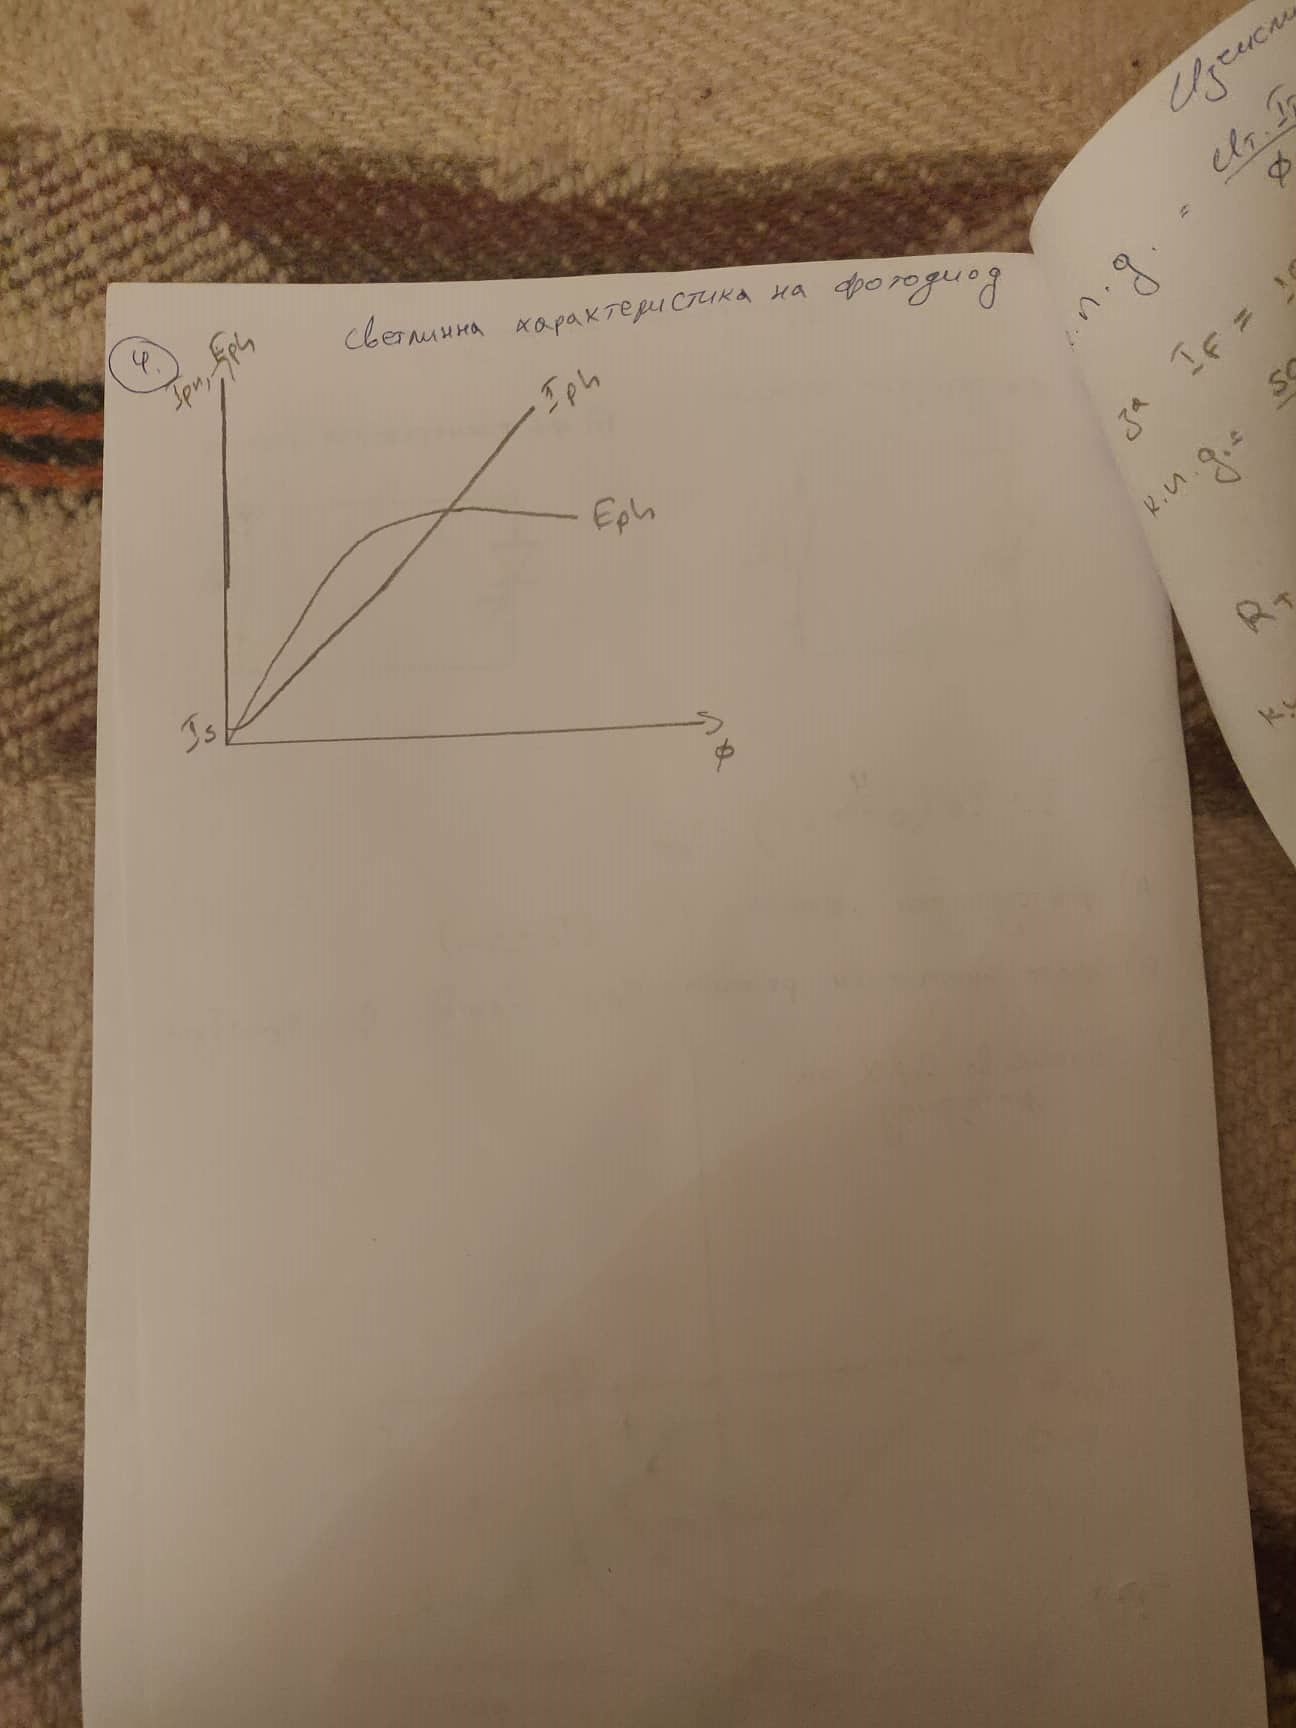 4. Светлинна характеристика на фотодиод
Iph, Eph
Iph
Eph
Is
Φ
Φ
к.п.д. =
За IF =
к.п.д. =